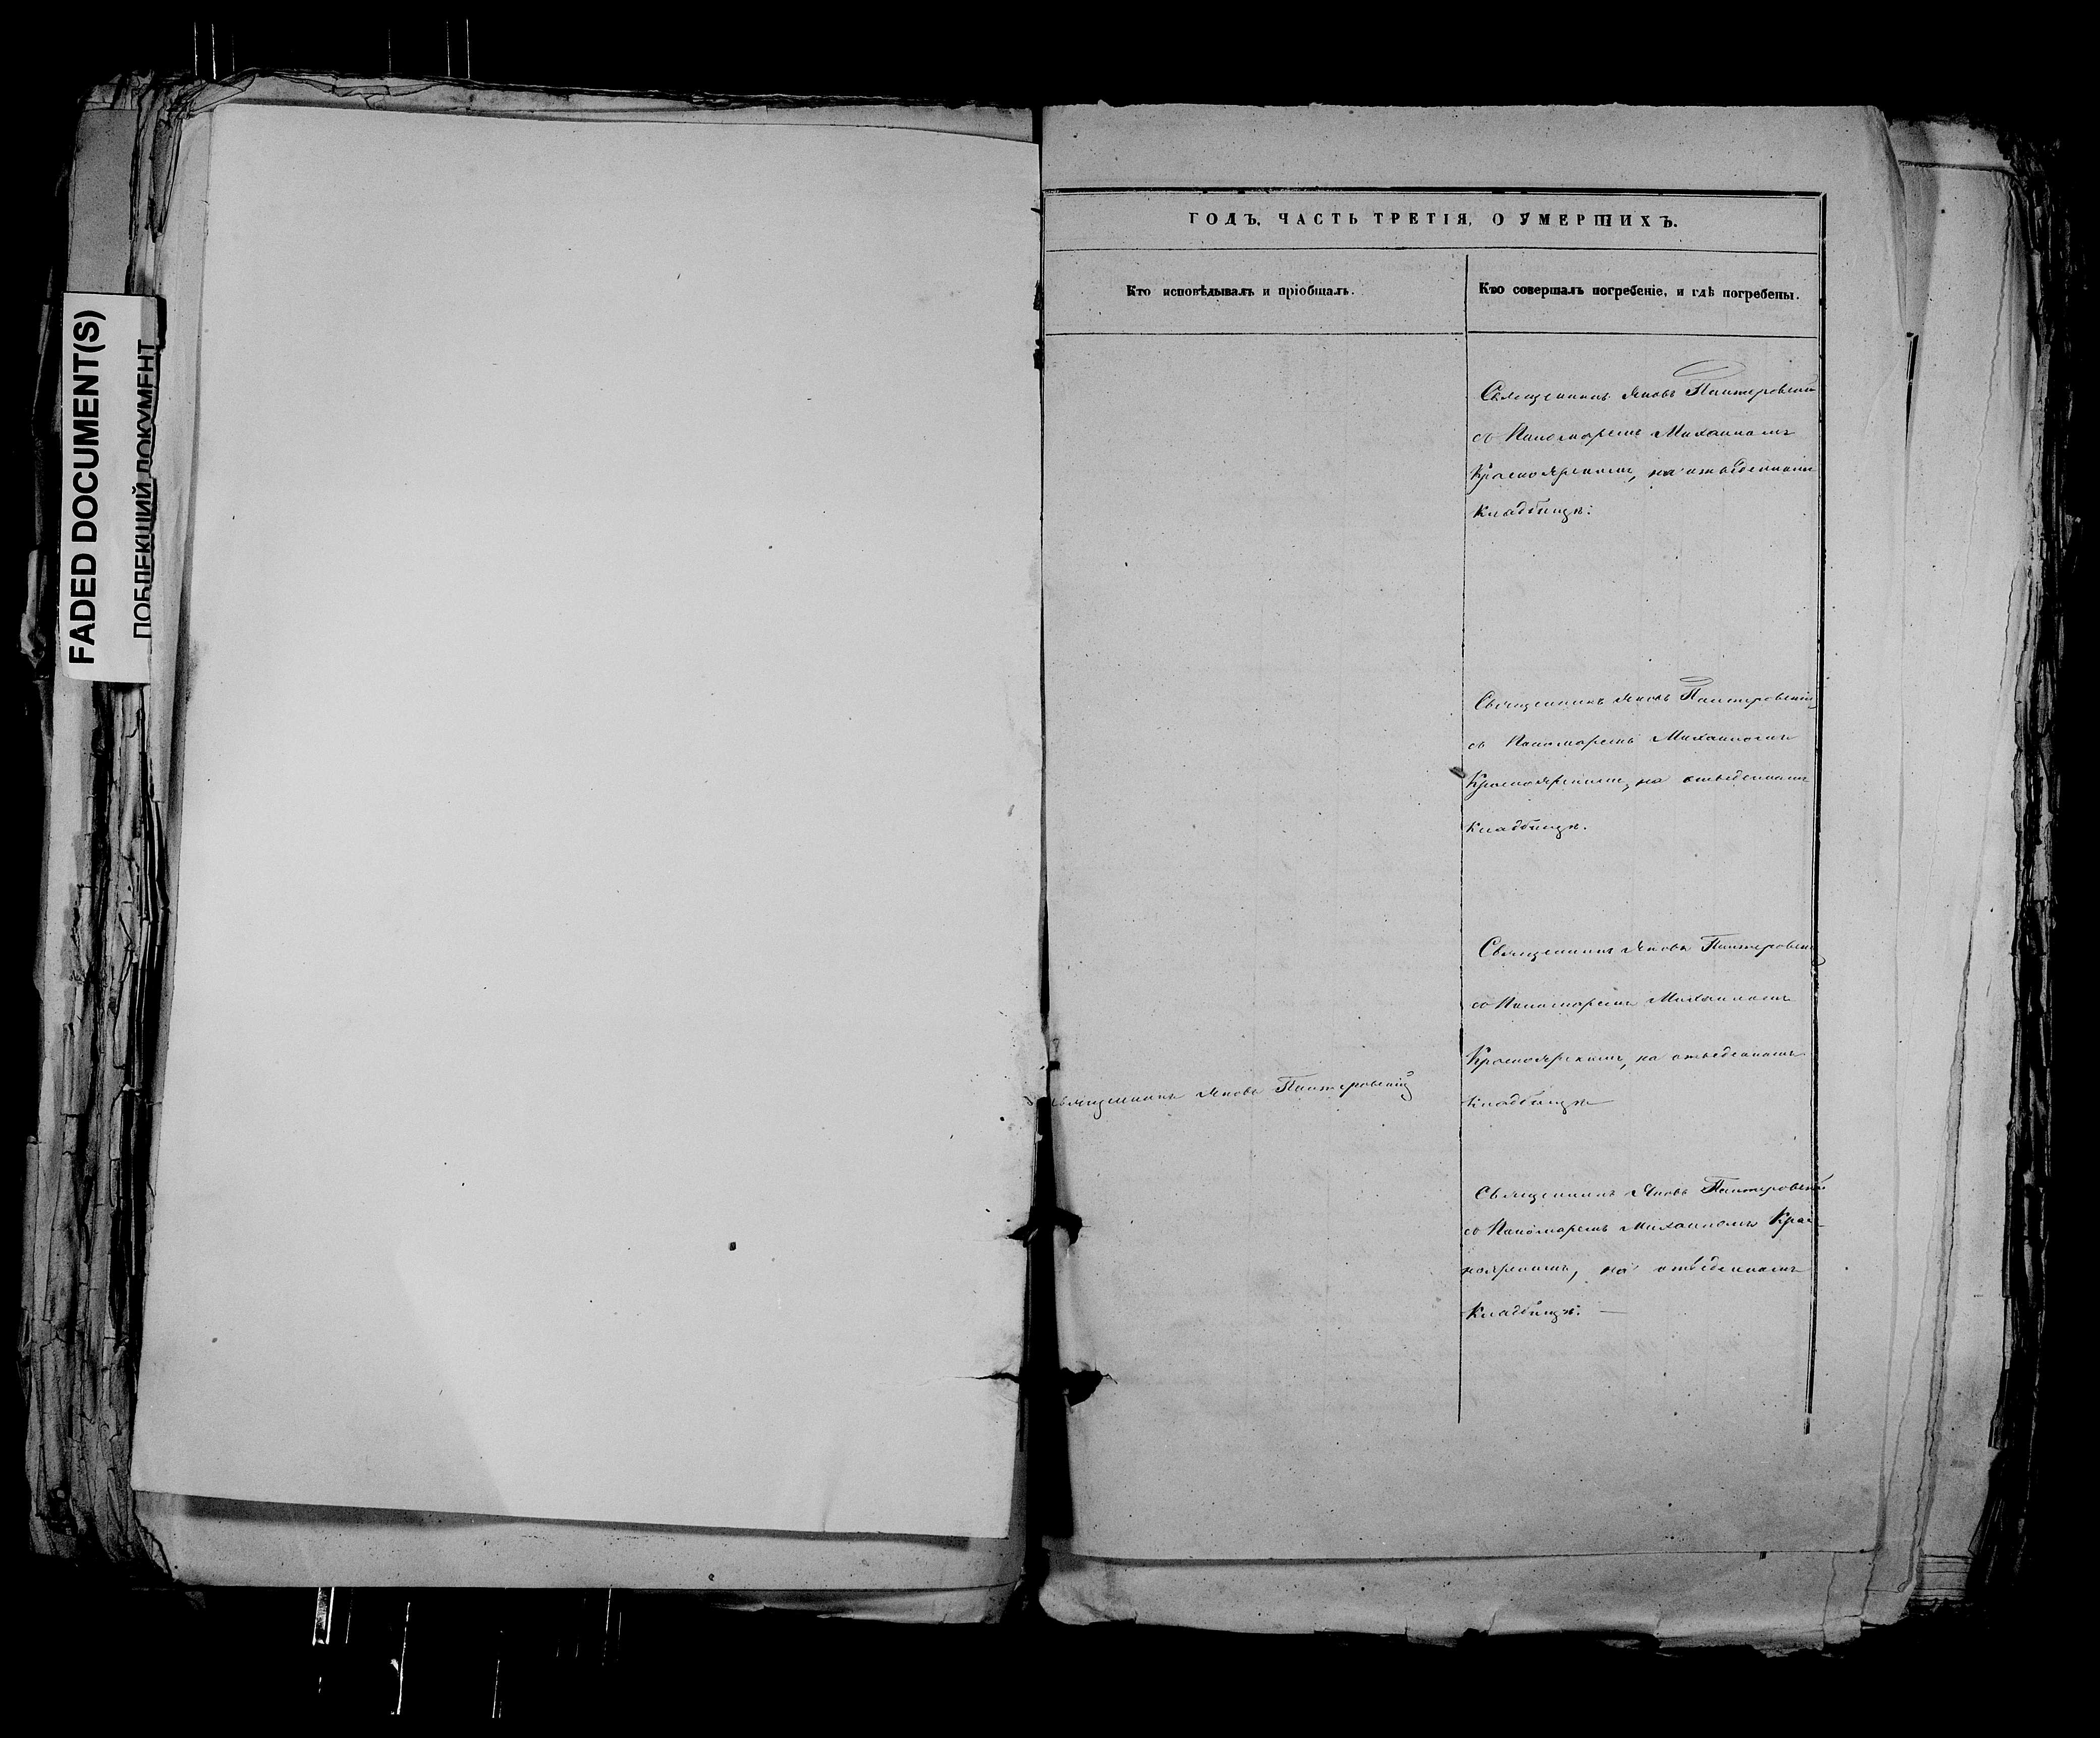 FADED DOCUMENT(S)
ПОБЛЕКШИЙ ДОКУМЕНТ
ГОДЪ, ЧАСТЬ ТРЕТІЯ, О УМЕРШИХЪ.
Кто исповѣдывалъ и пріобщалъ.
Кто совершалъ погребеніе, и гдѣ погребены.
Священникъ Яковъ
со Пономаремъ Михаиломъ
Красноярскимъ, на отведенномъ
Кладбищѣ.
Священникъ Яковъ
съ Пономаремъ Михаиломъ
Красноярскимъ, на отведенномъ
Кладбищѣ.
Священникъ Яковъ
Священникъ Яковъ
со Пономаремъ Михаиломъ
Красноярскимъ, на отведенномъ
Кладбищѣ
Священникъ Яковъ
со Пономаремъ Михаиломъ Крас-
ноярскимъ, на отведенномъ
Кладбищѣ. —